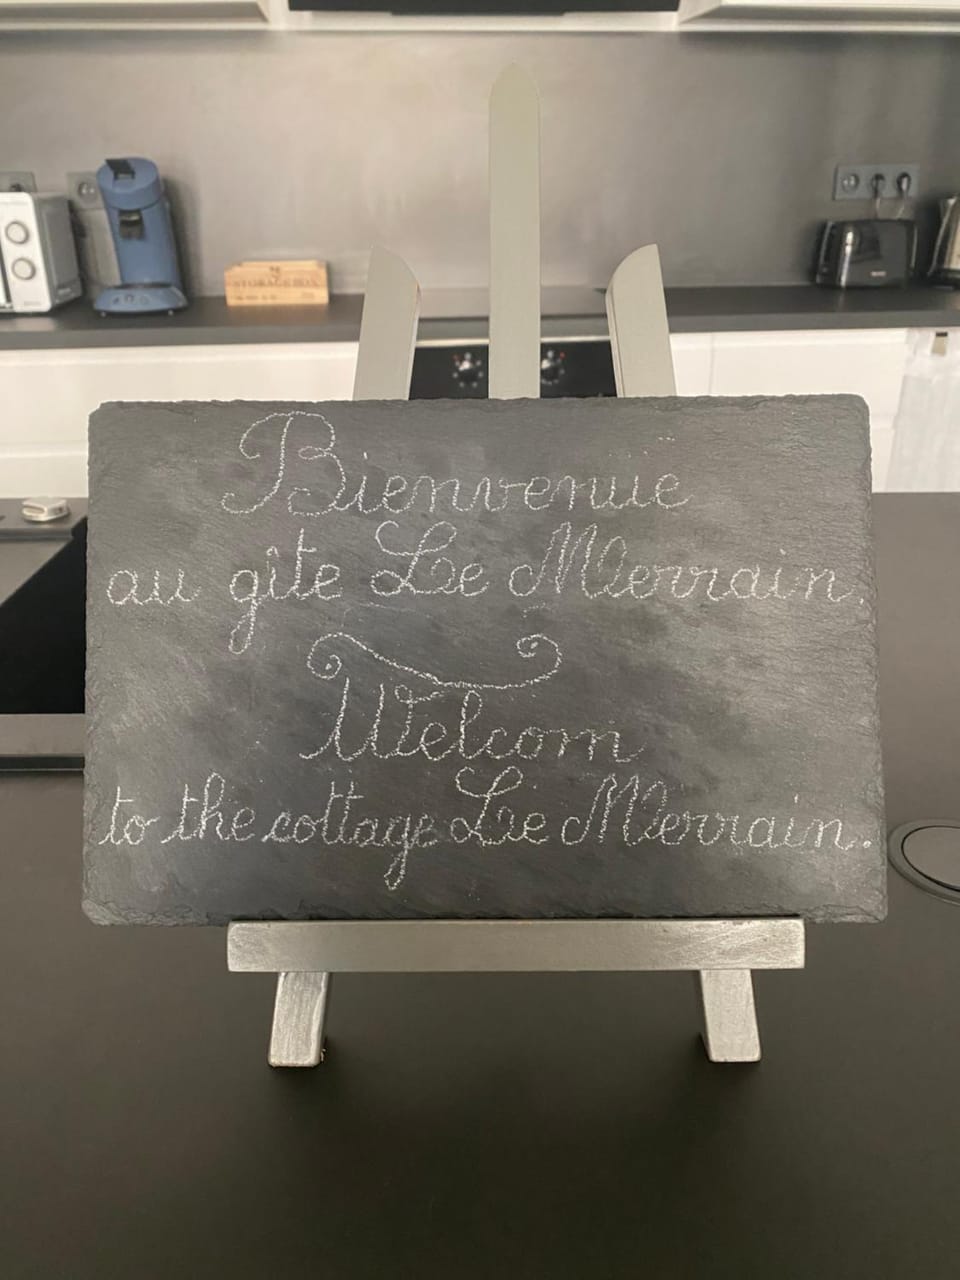 Bienvenue
au gîte Le Merrain.
Welcom
to the cottage Le Merrain.
STORAGE BOX